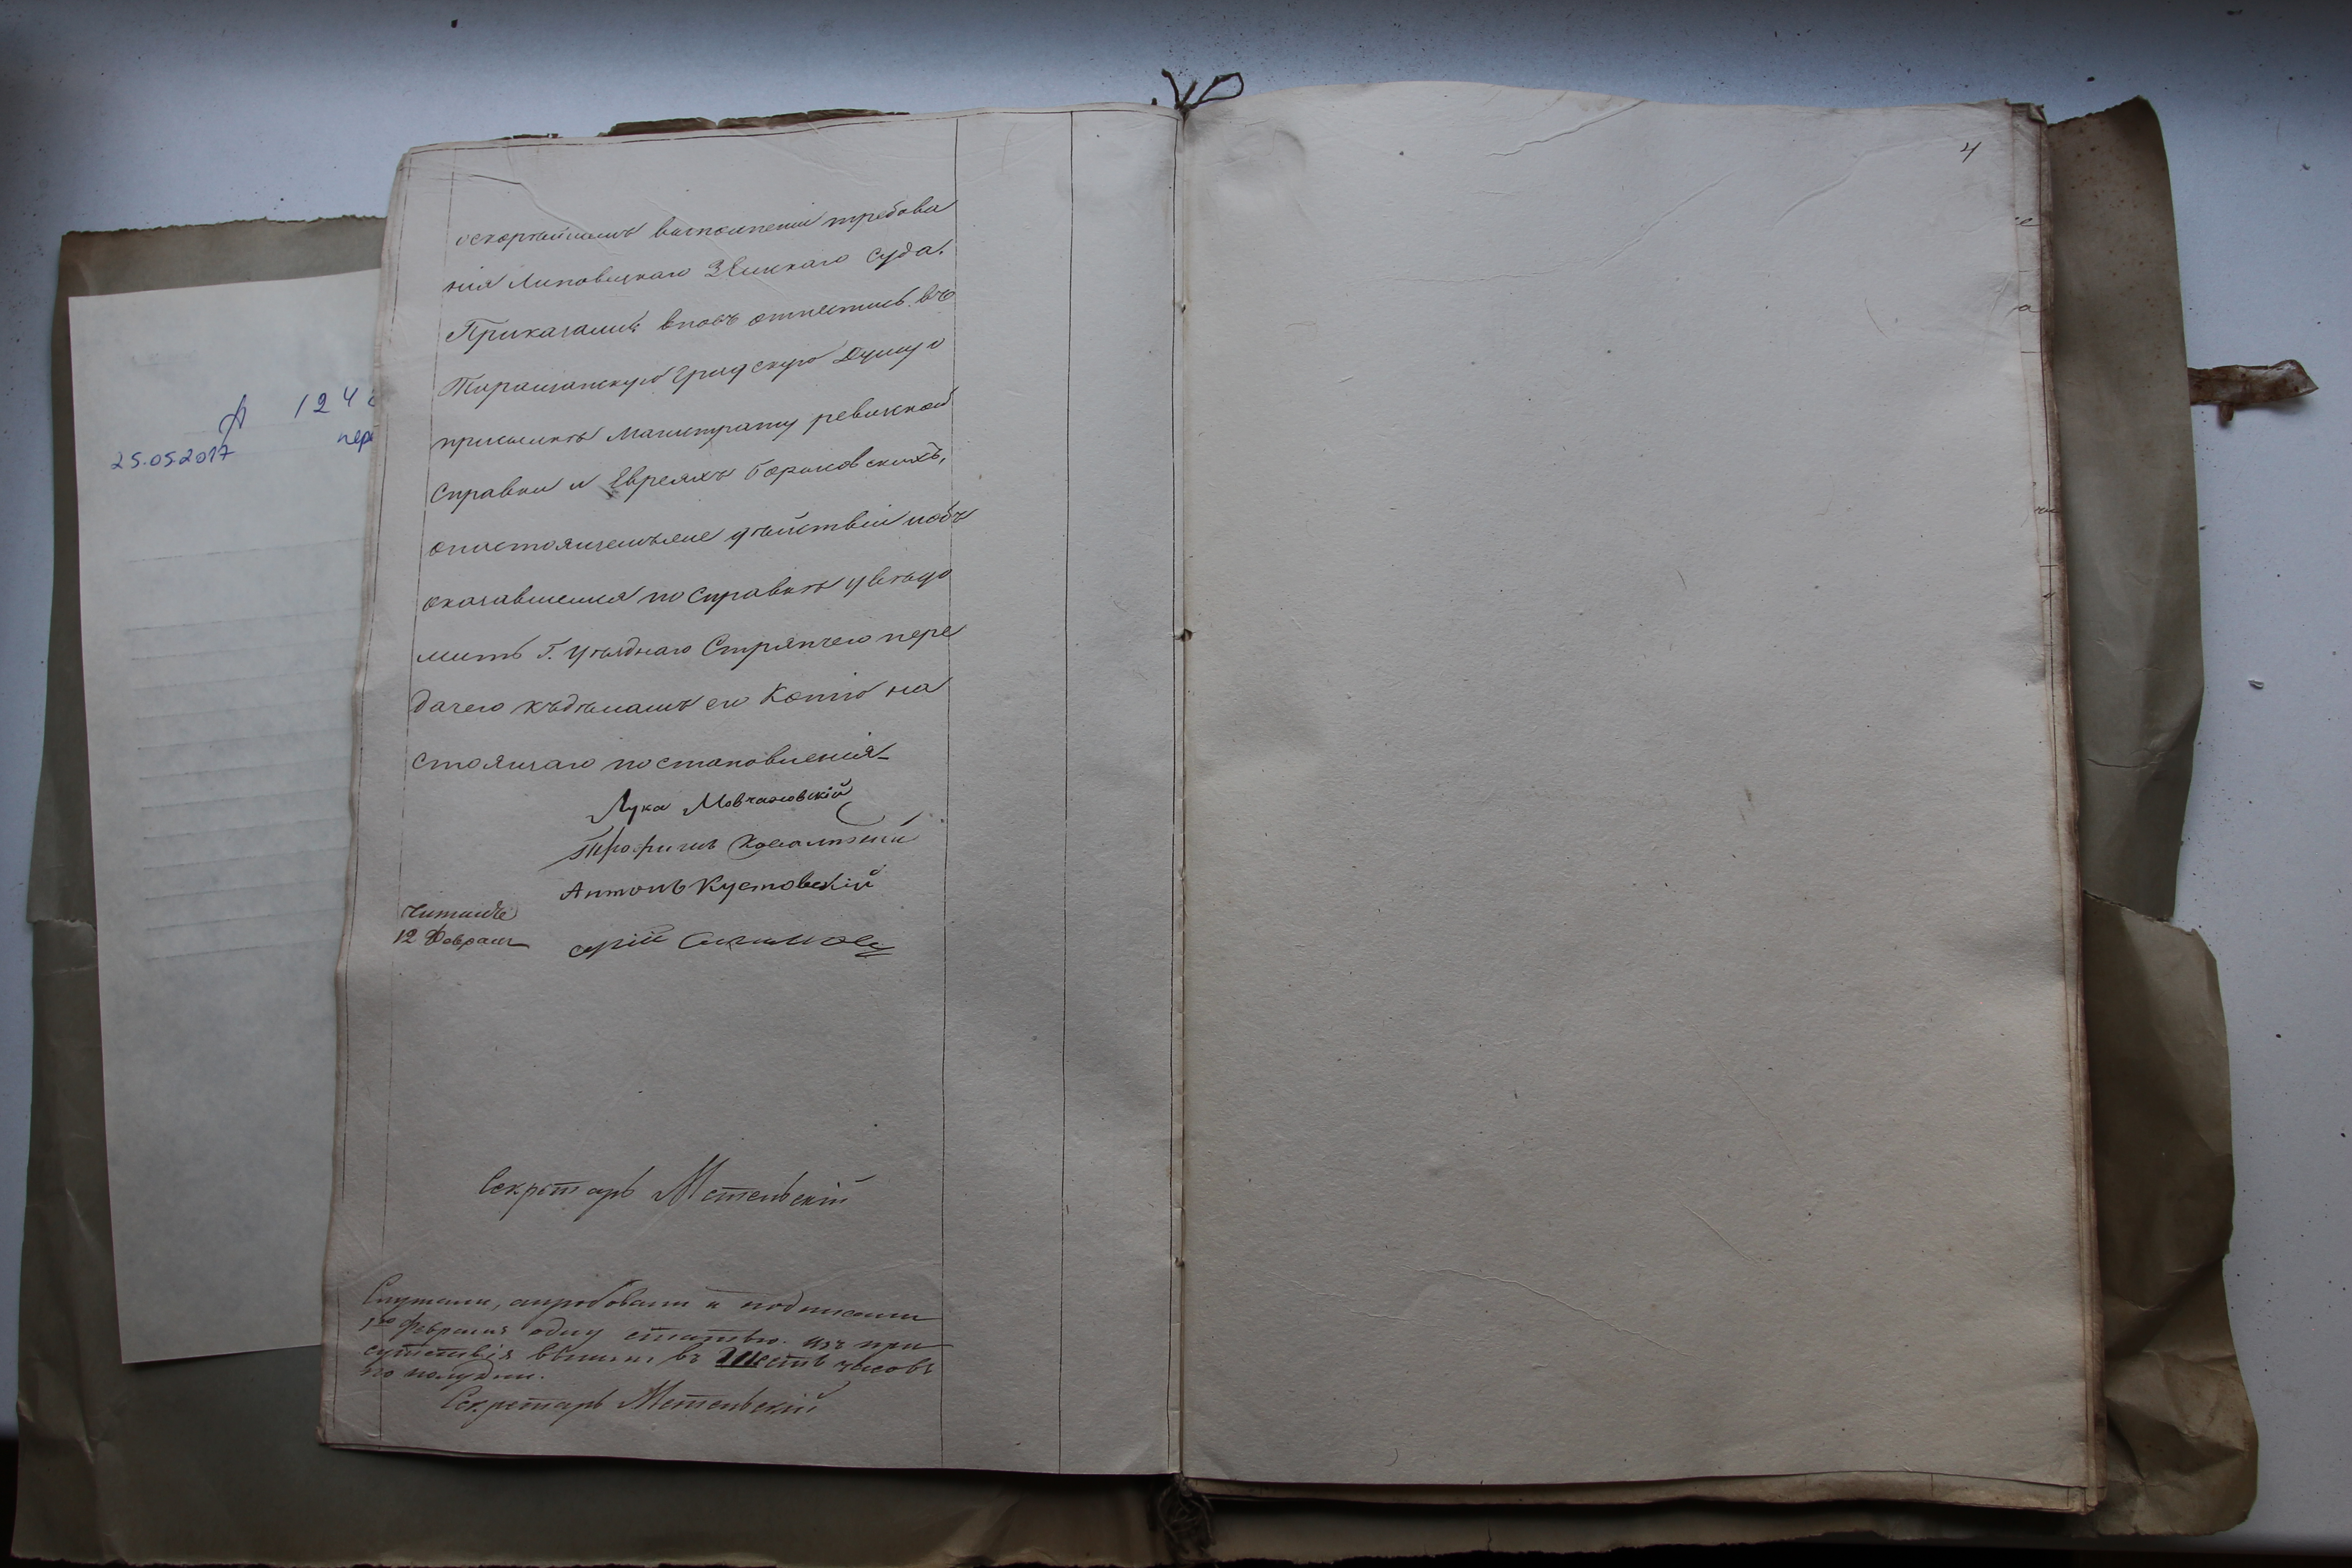 124
25.05.2017
пере
оскорѣйшемъ выполненіи требова
нія Липовецкаго Земскаго Суда.
Приказали: вновь отнестись въ
Таращанскую Градскую Думу о
присылкѣ Магистрату ревизкой
Справки о Евреяхъ Бориовскихъ,
онастоящемъ же дѣйствіи и объ
оказавшемся по Справкѣ увѣдо
мить Г. Уѣзднаго Стряпчего пере
дачею къдѣламъ его Копію на
стоящаго постановленія
Лука Мовчановскій
Трофимъ
Антонъ Кустовскій
Читалъ
12 Февраля
Секретарь Метельскій
Слушали, апробовали и подписали
1го февраля одну статью. изъ при
сутствія вышли въ шесть часовъ
по полудни.
Секретарь Метельскій
4